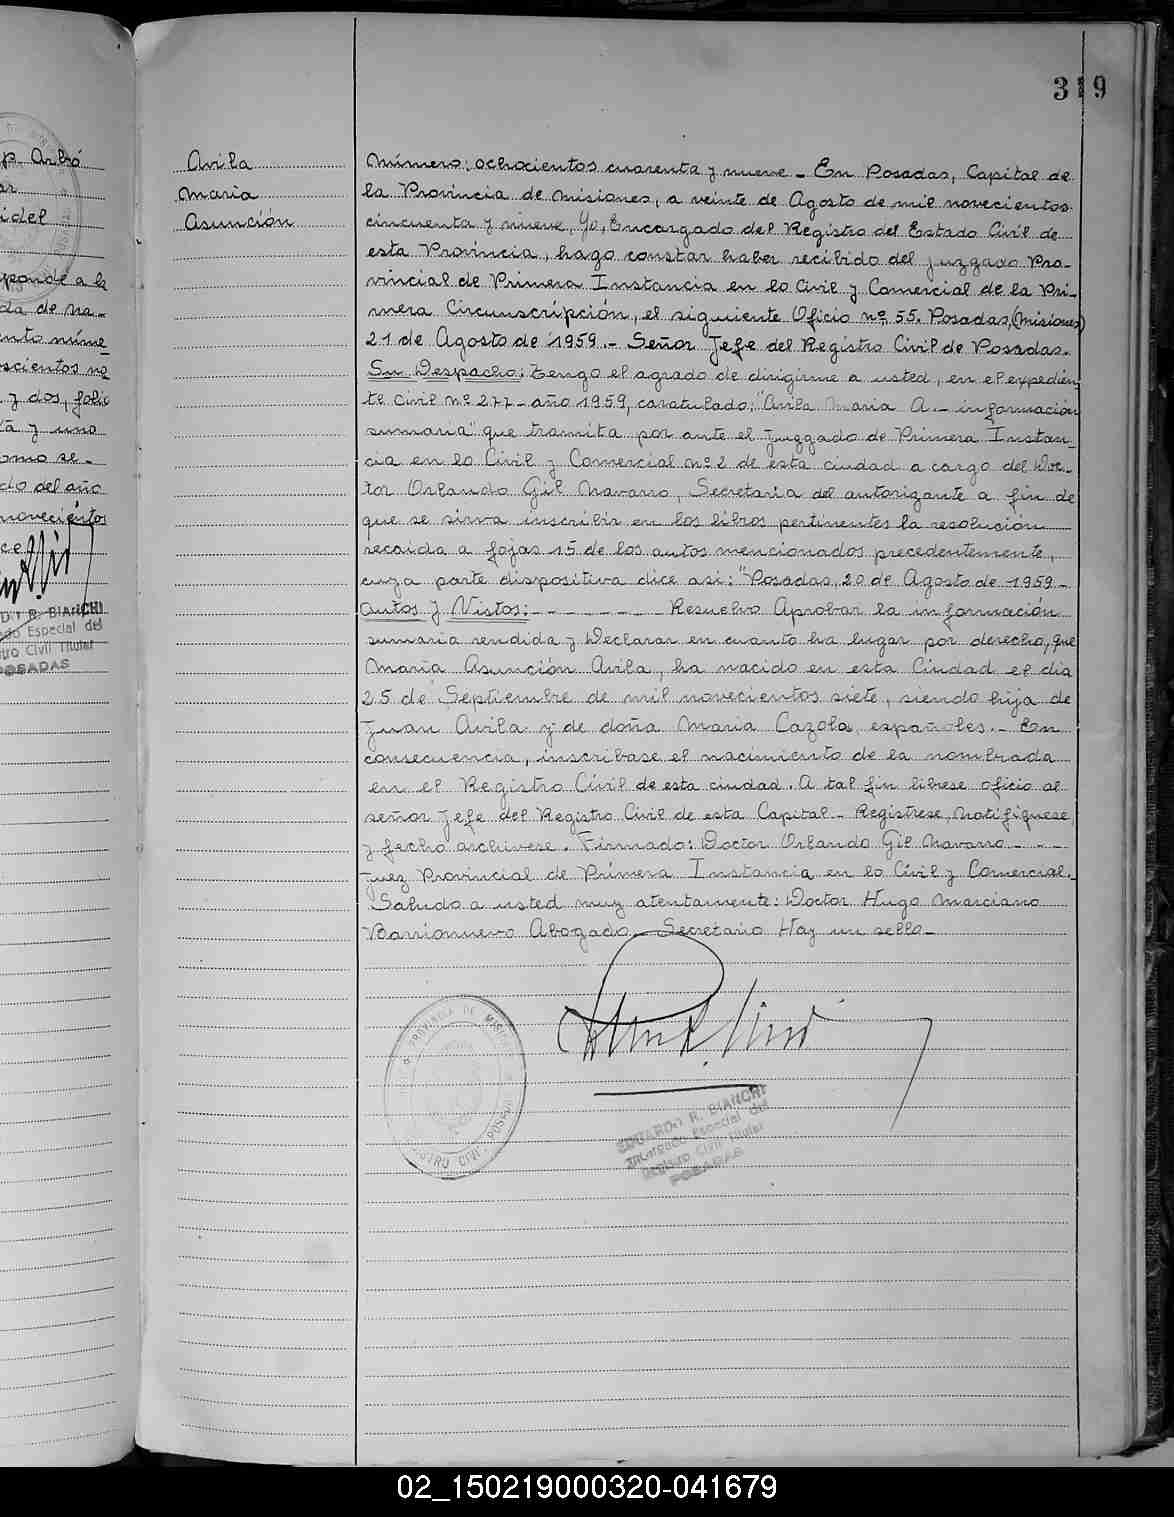 319
p. Arbó
ar
idel
sponde a la
da de na-
ento núme
scientos no
y dos, folio
ta y uno
omo se-
do del año
novecientos
ce
DO R. BIANCHI
ado Especial del
stro Civil Titular
POSADAS
Avila
Maria
Asunción
Número: ochocientos cuarenta y nueve - En Posadas, Capital de
la Provincia de Misiones, a veinte de Agosto de mil novecientos
cincuenta y nueve, Yo, Encargado del Registro del Estado Civil de
esta Provincia, hago constar haber recibido del Juzgado Pro-
vincial de Primera Instancia en lo Civil y Comercial de la Pri-
mera Circunscripción, el siguiente Oficio nº 55. Posadas, (Misiones)
21 de Agosto de 1959.- Señor Jefe del Registro Civil de Posadas.
Su Despacho: Tengo el agrado de dirigirme a usted, en el expedien
te Civil Nº 277- año 1959, caratulado: "Avila Maria A. - información
sumaria" que tramita por ante el Juzgado de Primera Instan_
cia en lo Civil y Comercial nº 2 de esta ciudad a cargo del Doc-
tor Orlando Gil Navarro, Secretaria del autorizante a fin de
que se sirva inscribir en los libros pertinentes la resolución
recaida a fojas 15 de los autos mencionados precedentemente,
cuya parte dispositiva dice asi: "Posadas, 20 de Agosto de 1959-
Autos y Vistos: - - - - - - - - Resuelvo Aprobar la información
sumaria rendida y Declarar en cuanto ha lugar por derecho, que
Maria Asunción Avila, ha nacido en esta Ciudad el dia
25 de Septiembre de mil novecientos siete, siendo hija de
Juan Avila y de doña Maria Cazola, españoles. - En
consecuencia, inscribase el nacimiento de la nombrada
en el Registro Civil de esta ciudad. A tal fin librese oficio al
señor Jefe del Registro Civil de esta Capital - Registrese, Notifiquese,
y fecho archivese. Firmado: Doctor Orlando Gil Navarro - - -
Juez Provincial de Primera Instancia en lo Civil y Comercial.-
Saludo a usted muy atentamente: Doctor Hugo Marciano
Barrionuevo Abogado - Secretario Hay un sello -
PROVINCIA DE MISIONES
REGISTRO CIVIL POSADAS
EDUARDO R. BIANCHI
Encargado Especial del
Registro Civil Titular
POSADAS
02_150219000320-041679